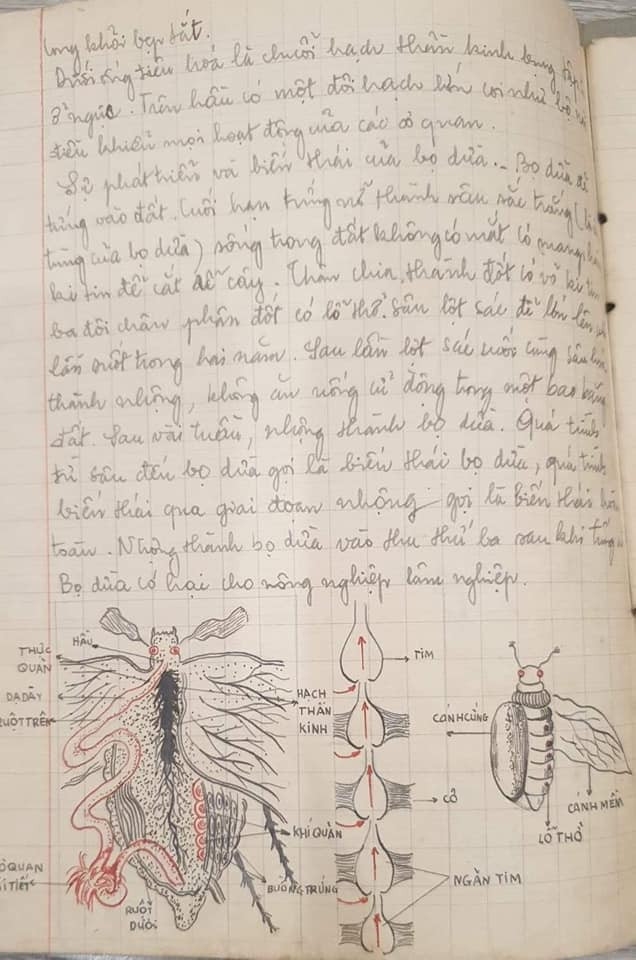 long khỏi bẹp dắt.
Dưới ống tiêu hoá là chuỗi hạch thần kinh bụng
ở ngực. Trên hầu có một đôi hạch lớn coi như bộ
điều khiển mọi hoạt động của các cơ quan.
Sự phát triển và biến thái của bọ dừa. - Bọ dừa đẻ
trứng vào đất. Cuối hạn trứng nở thành sâu sắc trắng (
trùng của bọ dừa) sống trong đất không có mắt có
kitin để cắt dễ cây. Thân chia thành đốt có vỏ kitin
ba đôi chân phân đốt có lỗ thở. Sâu lột sác để lớn lên
lần suốt trong hai năm. Sau lần lột sác cuối cùng sâu
thành nhộng, không ăn uống cử động trong một bao bằng
đất. Sau vài tuần, nhộng thành bọ dừa. Quá trình
từ sâu đến bọ dừa gọi là biến thái bọ dừa, quá trình
biến thái qua giai đoan nhộng gọi là biến thái
toàn. Nhộng thành bọ dừa vào thu thứ ba sau khi
Bọ dừa có hại cho nông nghiệp lâm nghiệp.
HẦU
THỰC
QUẢN
DẠ DÀY
RUỘT TRÊN
RUỘT
DƯỚI
HẠCH
THẦN
KINH
KHÍ QUẢN
BUỒNG TRỨNG
TIM
CỔ
NGĂN TIM
CÁNH CỨNG
CÁNH MỀM
LỖ THỞ